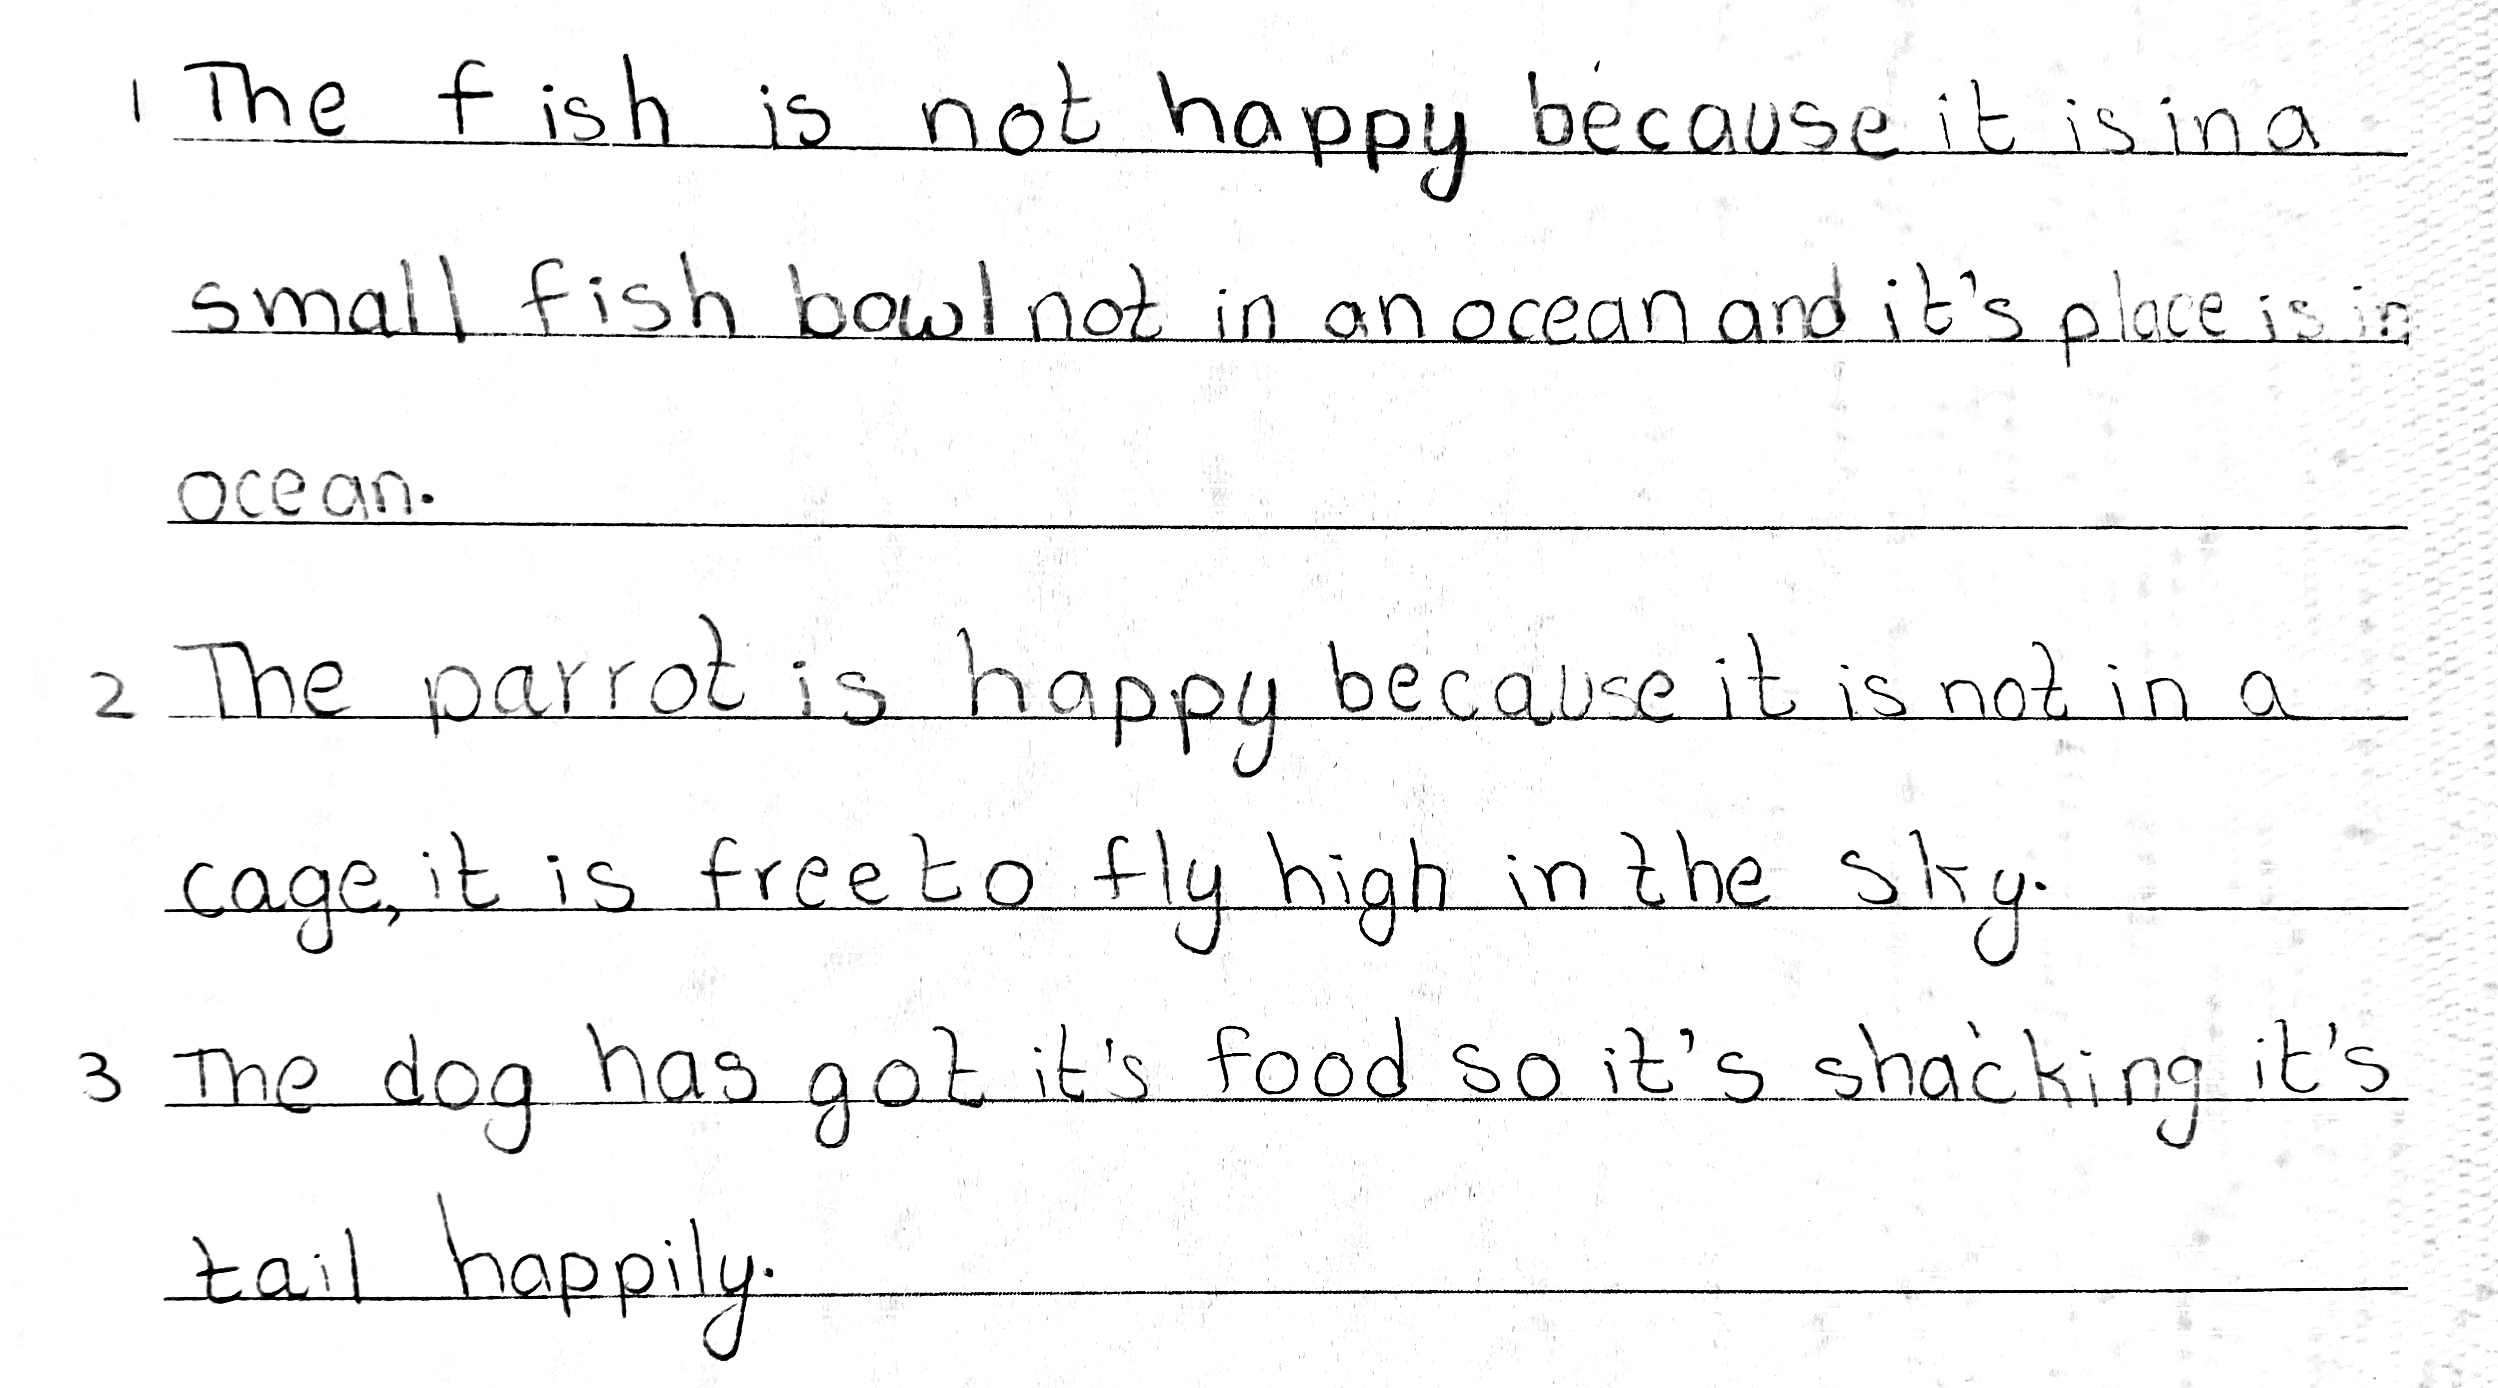 1 The fish is not happy because it is in a
small fish bowl not in an ocean and it's place is in
ocean.
2 The parrot is happy because it is not in a
cage, it is free to fly high in the sky.
3 The dog has got it's food so it's shacking it's
tail happily.